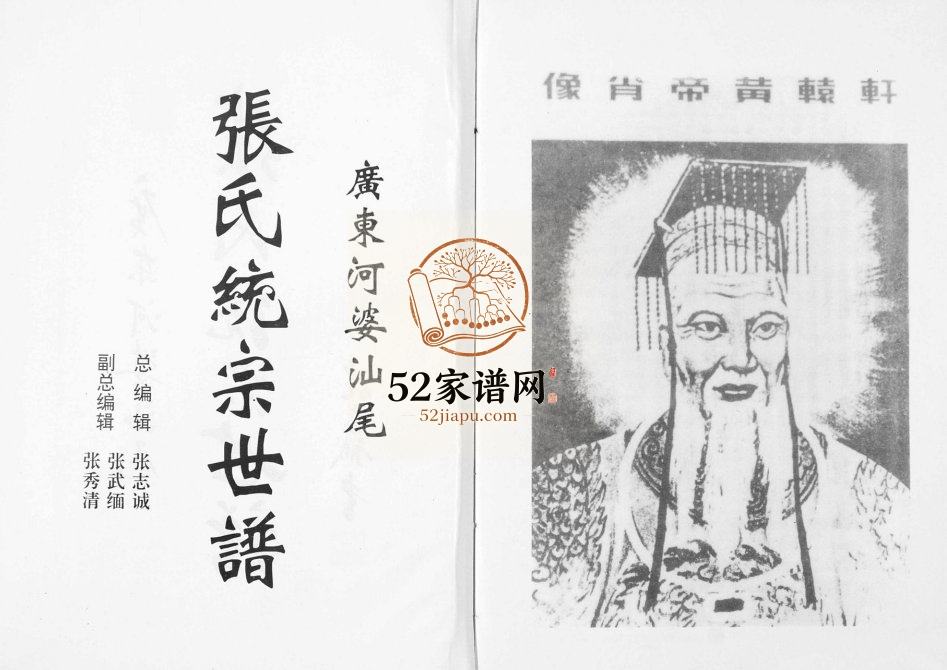 軒轅黃帝肖像
廣東河婆汕尾
張氏統宗世譜
总编辑 张志诚
副总编辑 张武缅
张秀清
52家谱网
52jiapu.com